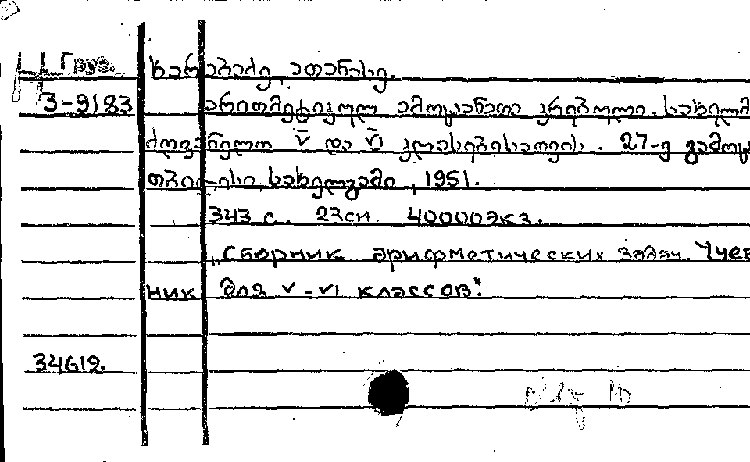 Груз.
ხარაბაძე, ათანასე.
3-9183
არითმეტიკულ ამოცანათა კრებული. სახელმ
ძღვანელო V და VI კლასებისათვის. 27-ე გამოც
თბილისი, სახელგამი, 1951.
343 с. 23см. 40000экз.
„Сборник арифметических задач. Учеб
ник для V-VI классов."
34612.